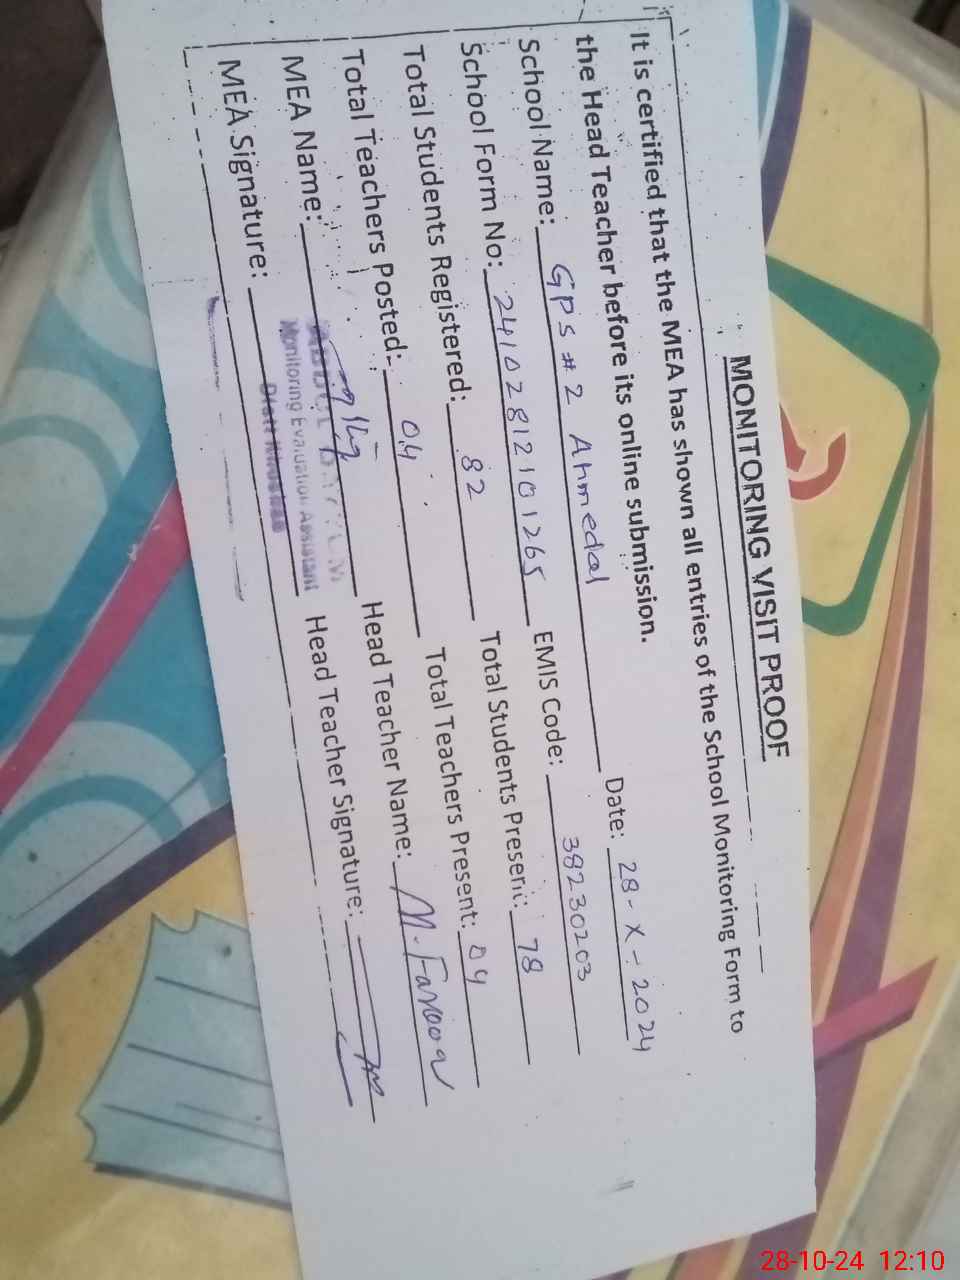 MONITORING VISIT PROOF
It is certified that the MEA has shown all entries of the School Monitoring Form to
the Head Teacher before its online submission.
School Name: GPS # 2 Ahmedal Date: 28-X-2024
School Form No: 24102812101265 EMIS Code: 38230203
Total Students Registered: 82 Total Students Present: 78
Total Teachers Posted: 04 Total Teachers Present: 04
MEA Name: Head Teacher Name: M. Farooq
MEA Signature: Head Teacher Signature:
Monitoring Evaluation Assistant
28-10-24 12:10